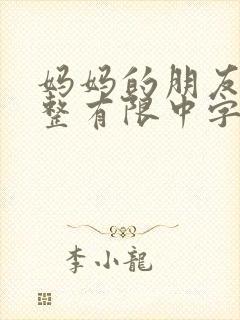 妈妈的朋友
整有限中字
李小龍